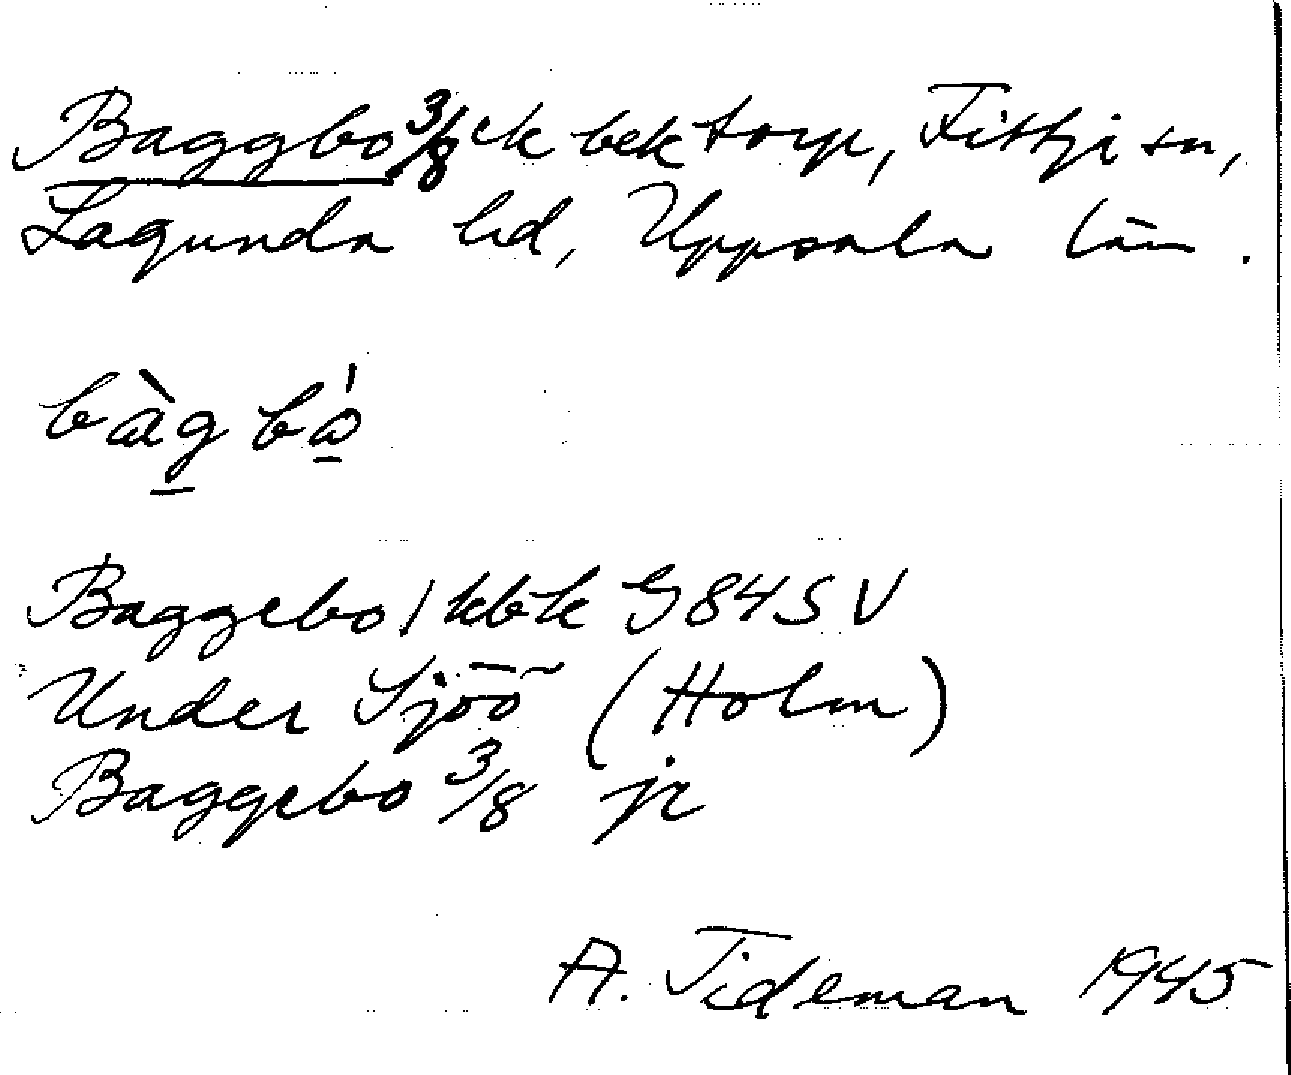 Baggbo 3/8 ek bek torp, Fittja sn,
Lagunda hd, Uppsala län.
bàg bó
Baggebo / kbk G 84 SV
Under Sjöö (Holm)
Baggebo 3/8 jr
A. Tideman 1945